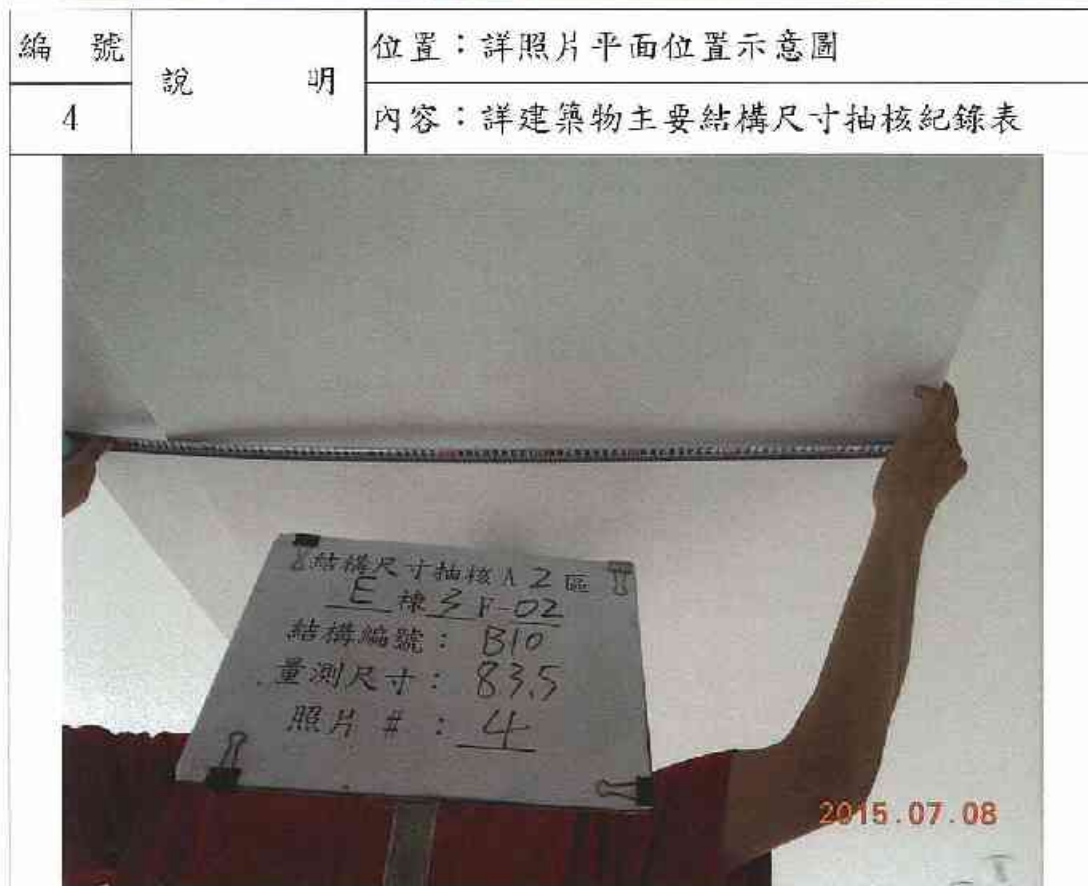 編 號
4
說 明
位置：詳照片平面位置示意圖
內容：詳建築物主要結構尺寸抽核紀錄表
結構尺寸抽核A2區
E棟3F-02
結構編號：B10
量測尺寸：83.5
照片#：4
2015.07.08